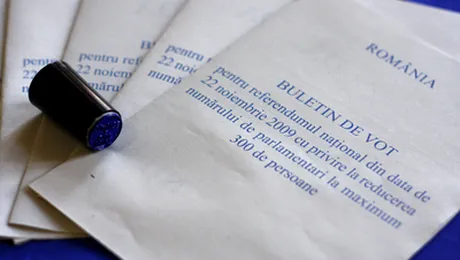 ROMÂNIA
BULETIN DE VOT
pentru referendumul național din data de
22 noiembrie 2009 cu privire la reducerea
numărului de parlamentari la maximum
300 de persoane
pentru
22 noi
numărul
BU
pentru referen
22 noiem